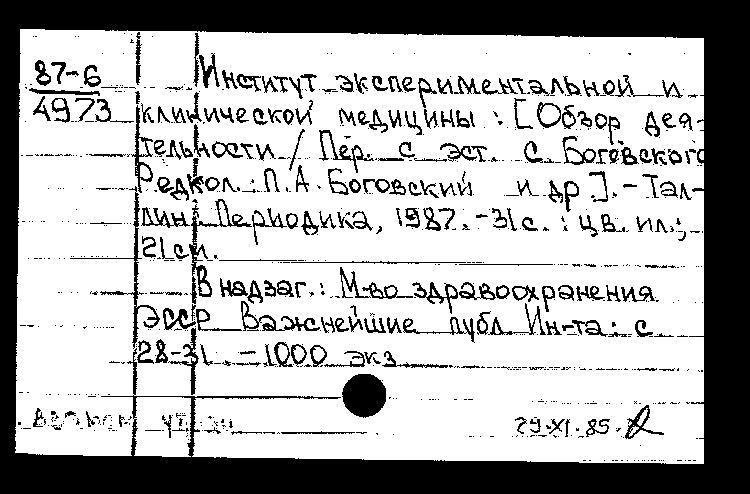 87-6
4973
Институт экспериментальной и
клинической медицины : [Обзор дея-
тельности / Пер. с эст. С. Боговского
Редкол.: П.А. Боговский и др.]. - Тал-
лин: Периодика, 1987. - 31 с. : цв. ил.;
21 см.
В надзаг.: М-во здравоохранения
ЭССР Важнейшие публ. Ин-та: с.
28-31. - 1000 экз.
29.XI.85.